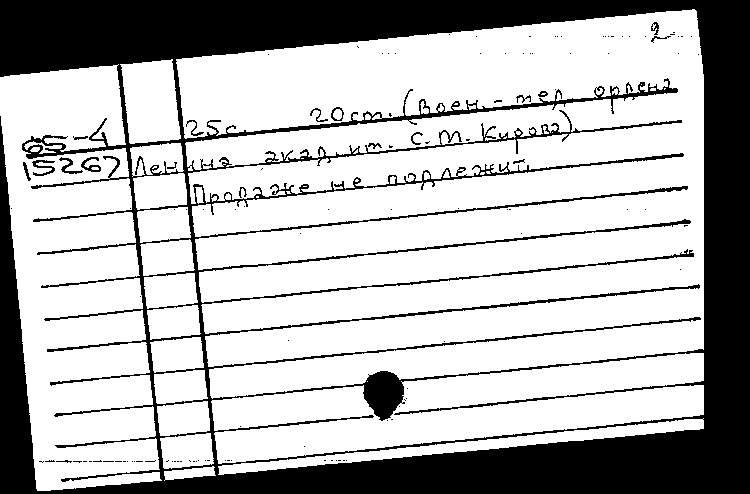 2
65-4 25с. 20см. (Воен.-мед. ордена
15267 Ленина акад. им. С.М. Кирова).
Продаже не подлежит.